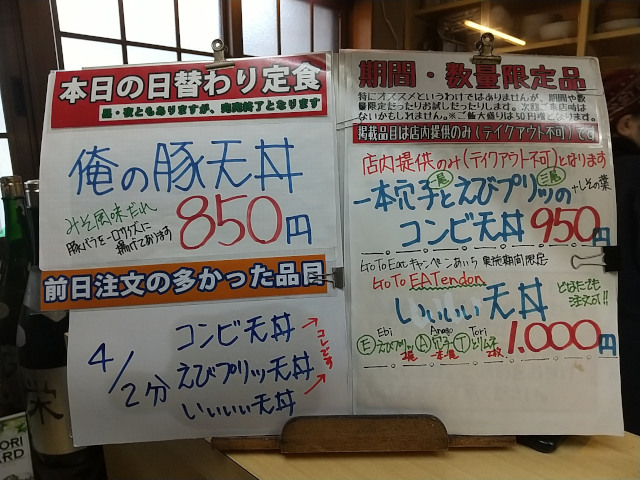 本日の日替わり定食
昼・夜ともありますが、完売終了となります
俺の豚天丼
みそ風味だれ
豚バラを一口サイズに
揚げてあります
850円
前日注文の多かった品目
4/2分
コンビ天丼
えびプリッ天丼
いいいい天丼
コレです
期間・数量限定品
特にオススメというわけではありませんが、期間や数
量限定だったりお試しだったりします。次回ご来店時は
ないかもしれません。※ご飯大盛りは50円増となります。
掲載品目は店内提供のみ(テイクアウト不可)です
店内提供のみ(テイクアウト不可)となります
一本穴子とえびプリッの
+しその葉
コンビ天丼 950円
GoToEatキャンペーンあいち 実施期間限定
GoTo EATendon
いいいい天丼
どなたでも
注文可!!
Ebi Anago Tori
E えびプリッ A 穴子 T とりムネ
1,000円